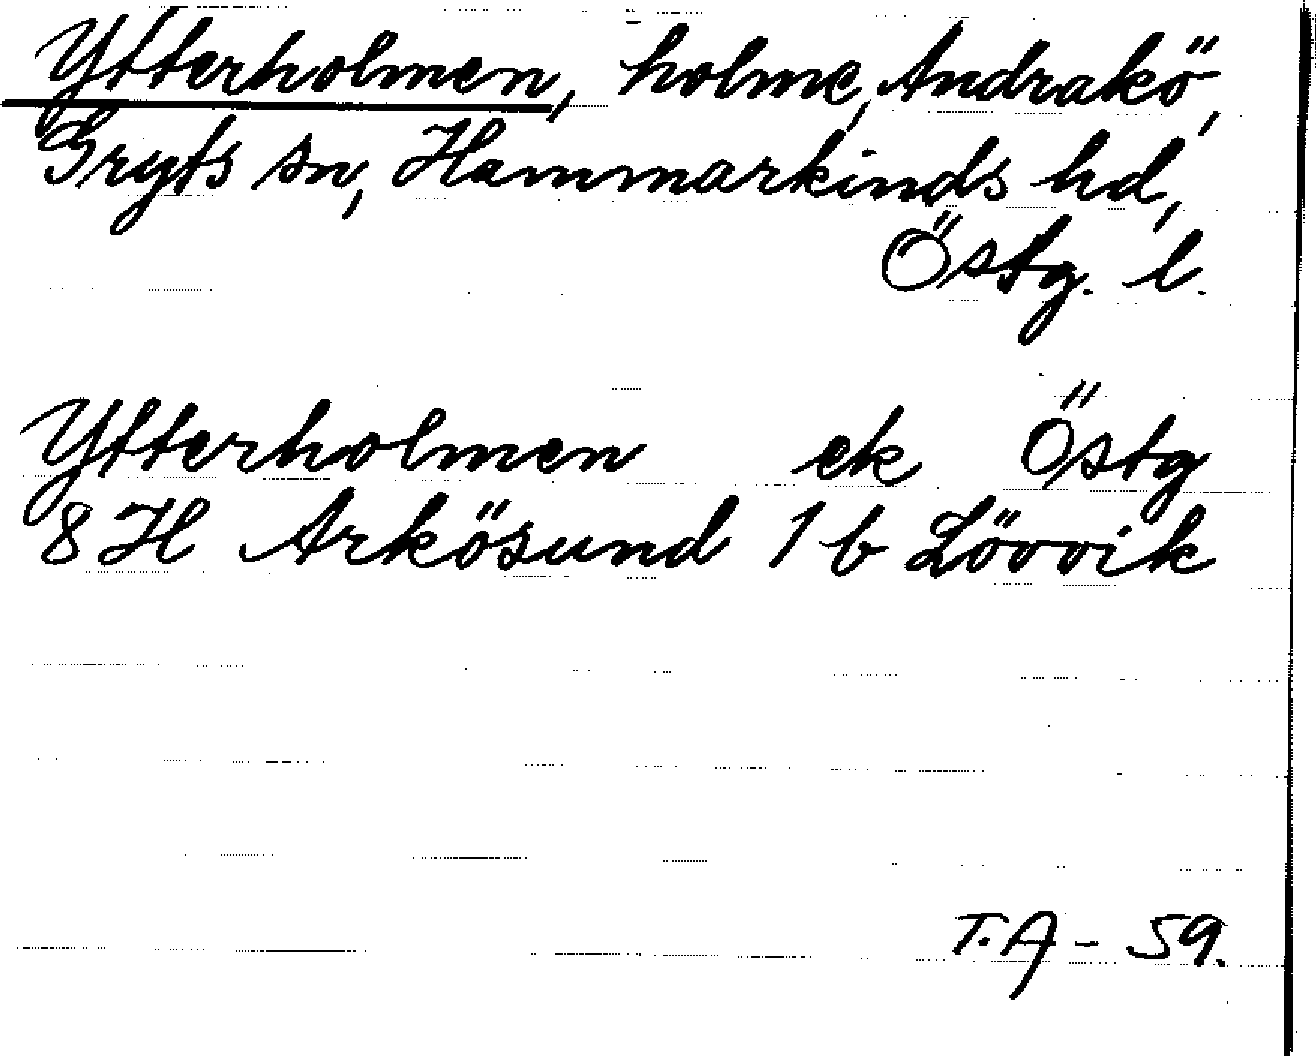 Ytterholmen, holme, Andrakö,
Gryts sn, Hammarkinds hd,
Östg. l.
Ytterholmen ek Östg
8 H Arkösund 1 b Lövvik
T.A - 59.